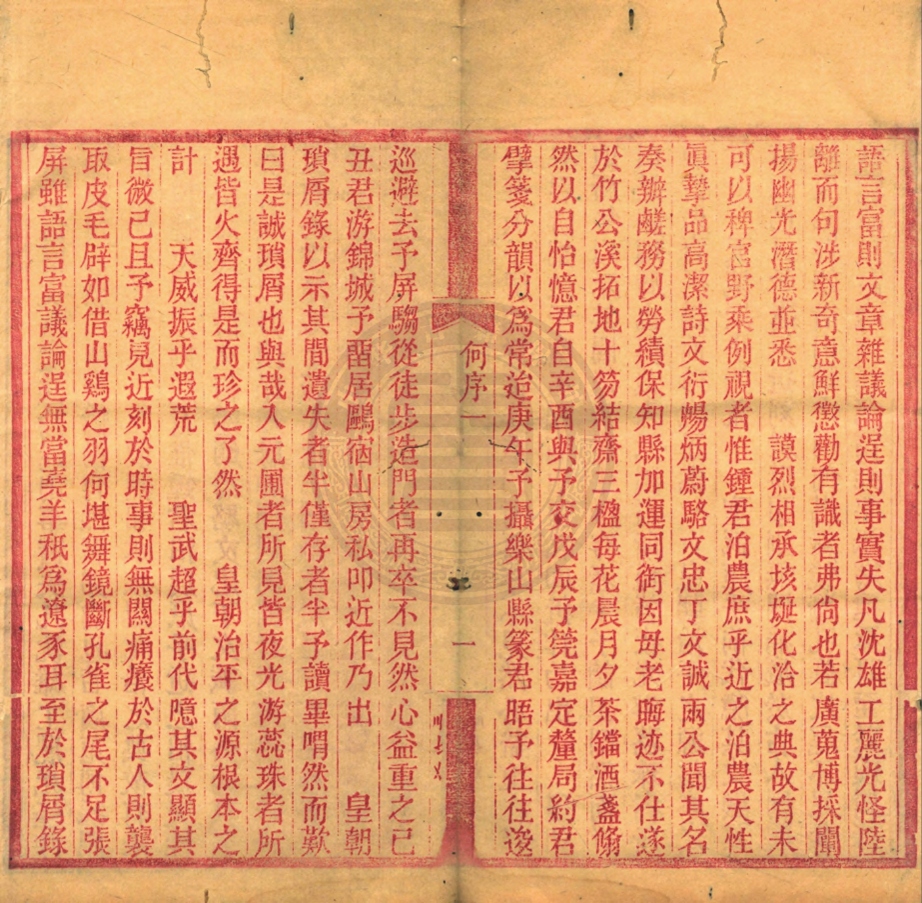 語言富則文章雜議論逞則事實失凡沈雄工麗光怪陸
離而句涉新奇意鮮懲勸有識者弗尙也若廣蒐博採闡
揚幽光潛德並悉 謨烈相承垓埏化洽之典故有未
可以稗官野乘例視者惟鍾君泊農庶乎近之泊農天性
眞摯品高潔詩文衍暢炳蔚駱文忠丁文誠兩公聞其名
奏辦鹺務以勞績保知縣加運同銜因母老晦迹不仕遂
於竹公溪拓地十笏結齋三楹每花晨月夕茶鐺酒盞翛
然以自怡憶君自辛酉與予交戊辰予筦嘉定釐局約君
擘箋分韻以爲常迨庚午予攝樂山縣篆君晤予往往逡
何序一
一
巡避去予屏騶從徒步造門者再卒不見然心益重之己
丑君游錦城予畱居鷗宿山房私叩近作乃出 皇朝
瑣屑錄以示其間遺失者半僅存者半予讀畢喟然而歎
曰是誠瑣屑也與哉入元圃者所見皆夜光游蕊珠者所
遇皆火齊得是而珍之了然 皇朝治平之源根本之
計 天威振乎遐荒 聖武超乎前代噫其文顯其
旨微已且予竊見近刻於時事則無關痛癢於古人則襲
取皮毛辟如借山鷄之羽何堪舞鏡斷孔雀之尾不足張
屏雖語言富議論逞無當堯羊秖爲遼豕耳至於瑣屑錄